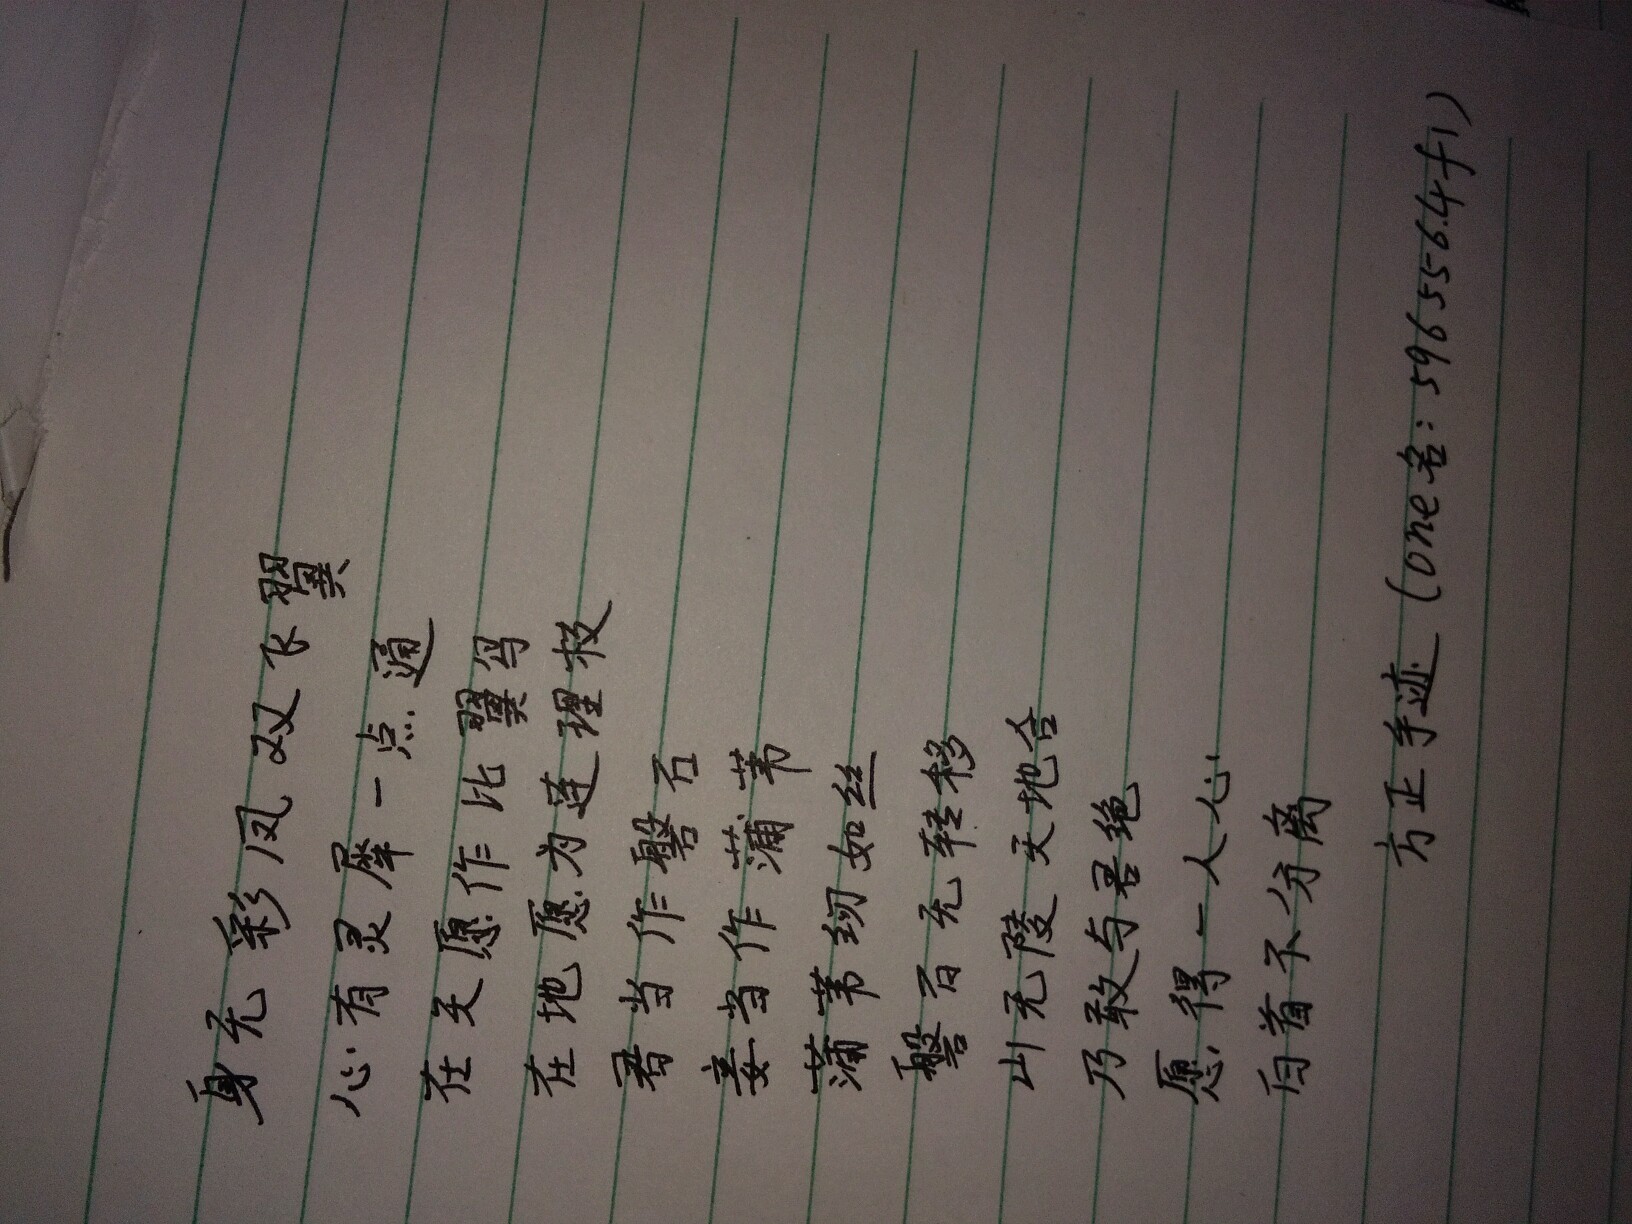 身无彩凤双飞翼
心有灵犀一点通
在天愿作比翼鸟
在地愿为连理枝
君当作磐石
妾当作蒲苇
蒲苇纫如丝
磐石无转移
山无陵天地合
乃敢与君绝
愿得一人心
白首不分离
方正手迹(one名:5965564f1)